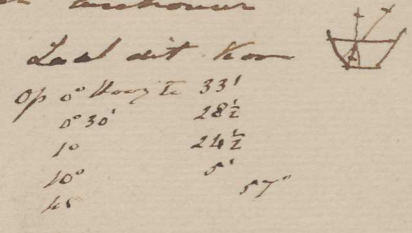 Zaal dit Kon
Op 0° Hoogte 33'
0° 30' 28½
1° 24½
10° 5'
45 57"